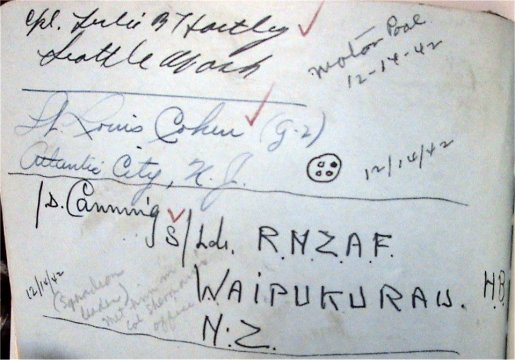 Cpl. Leslie B Hartley
Seattle Wash
Motor Pool
12-14-42
Lt. Louis Cohen (G-2)
Atlantic City, N.J.
12/14/42
D. Canning
S/Ldr. R.N.Z.A.F.
12/14/42
(Squadron
leader)
met him in
office
WAIPUKURAU. H.B
N.Z.